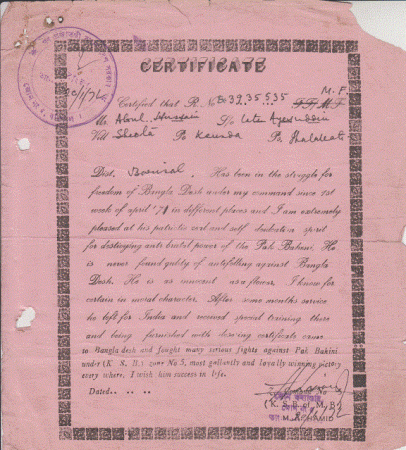 CERTIFICATE
M. F.
Certified that R. No 39,35,535
Mr. Abul Hussain S/o Late
Vill Po Ps. Jhalakati
Dist. Borisal. Has been in the struggle for
freedom of Bangla Desh under my command since 1st
week of april '71 in different places and I am extremely
pleased at his patriotic veel and self dedication spirit
for destroying anti brutal power of the Pak Bahini. He
is never found guilty of antifulling against Bangla
Desh. He is as innocent as a flower, I know for
certain in moral character. After some months service
he left for India and received special training there
and being furnished with desiving certificate came
to Bangla desh and fought many serious fights against Pak Bahini
under (K. S. B.) zone No 5, most gallantly and loyally winning victory
every where. I wish him success in life.
Dated
(K. S. B. of M. B.)
M. A. HAMID